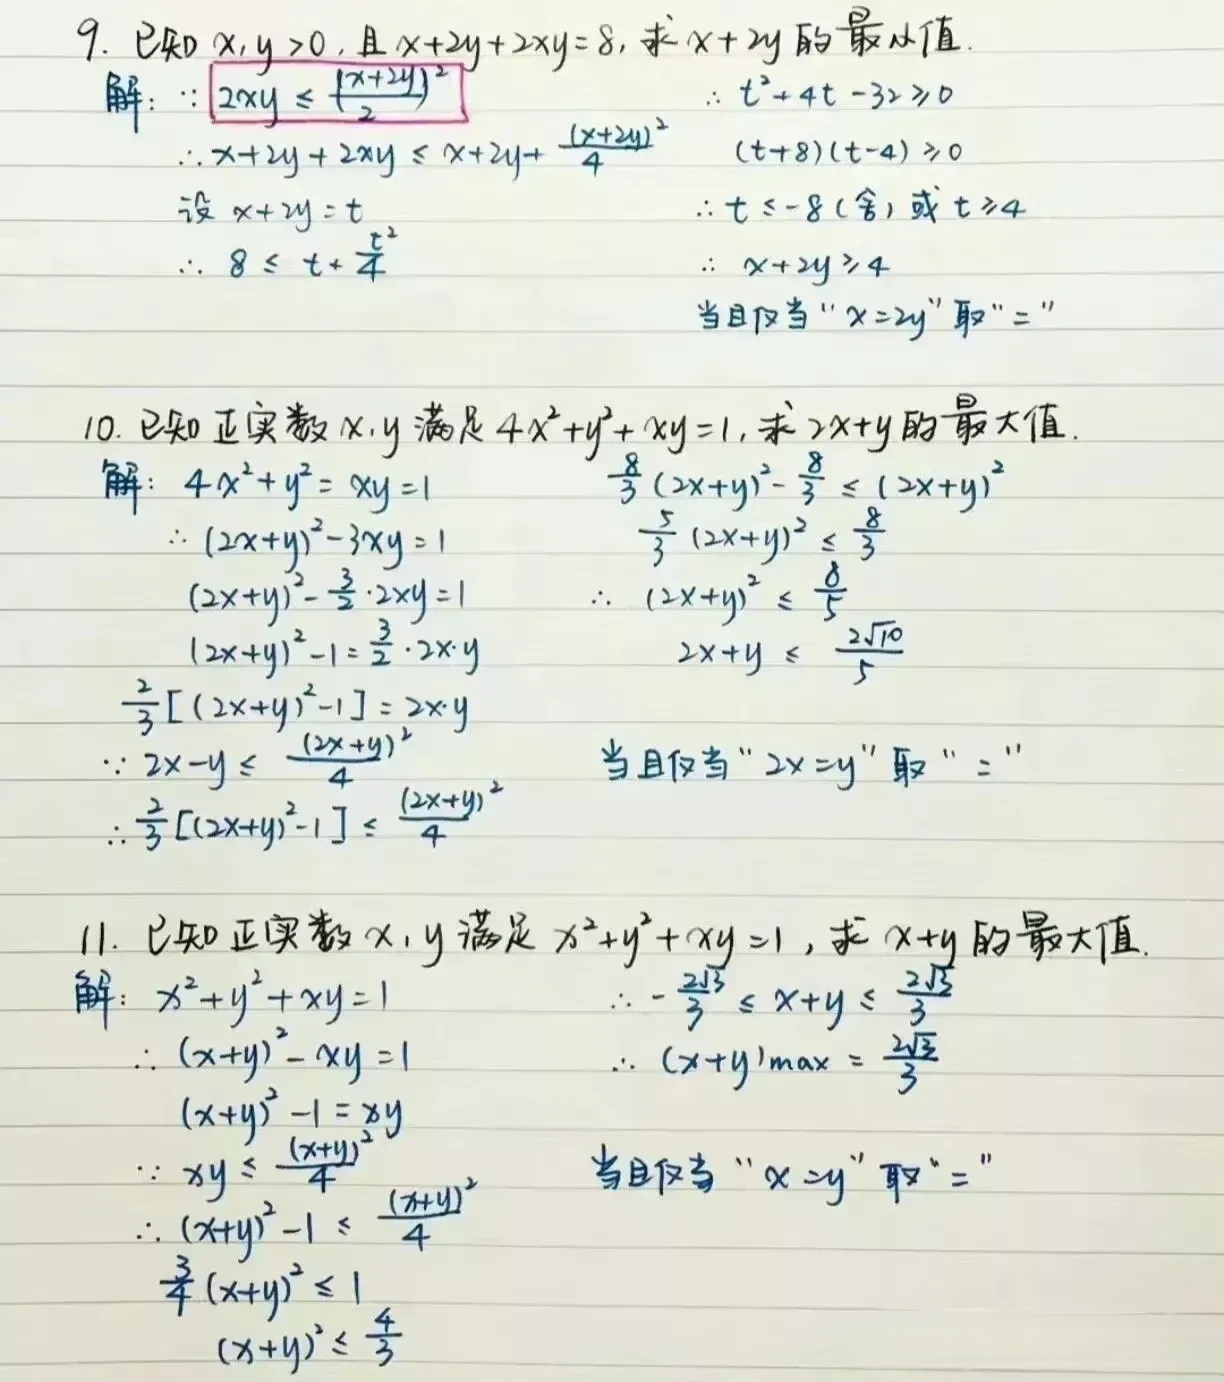 9. 已知 x, y >0, 且 x+2y+2xy=8, 求 x+2y 的最小值.
解: ∵ 2xy ≤ (x+2y)/2)²
∴ x+2y+2xy ≤ x+2y+ (x+2y)²/4
设 x+2y=t
∴ 8 ≤ t+ t²/4
∴ t²+4t-32≥0
(t+8)(t-4)≥0
∴ t≤-8(舍) 或 t≥4
∴ x+2y≥4
当且仅当“x=2y”取“=”
10. 已知正实数 x,y 满足 4x²+y²+xy=1, 求 2x+y 的最大值.
解: 4x²+y²=xy=1
∴ (2x+y)²-3xy=1
(2x+y)²-3/2·2xy=1
(2x+y)²-1=3/2·2x·y
2/3[(2x+y)²-1]=2x·y
∵ 2x-y ≤ (2x+y)²/4
∴ 2/3[(2x+y)²-1] ≤ (2x+y)²/4
8/3(2x+y)²-8/3 ≤ (2x+y)²
5/3(2x+y)² ≤ 8/3
∴ (2x+y)² ≤ 8/5
2x+y ≤ 2√10/5
当且仅当“2x=y”取“=”
11. 已知正实数 x, y 满足 x²+y²+xy=1, 求 x+y 的最大值.
解: x²+y²+xy=1
∴ (x+y)²-xy=1
(x+y)²-1=xy
∵ xy ≤ (x+y)²/4
∴ (x+y)²-1 ≤ (x+y)²/4
3/4(x+y)² ≤ 1
(x+y)² ≤ 4/3
∴ -2√3/3 ≤ x+y ≤ 2√3/3
∴ (x+y)max = 2√3/3
当且仅当“x=y”取“=”